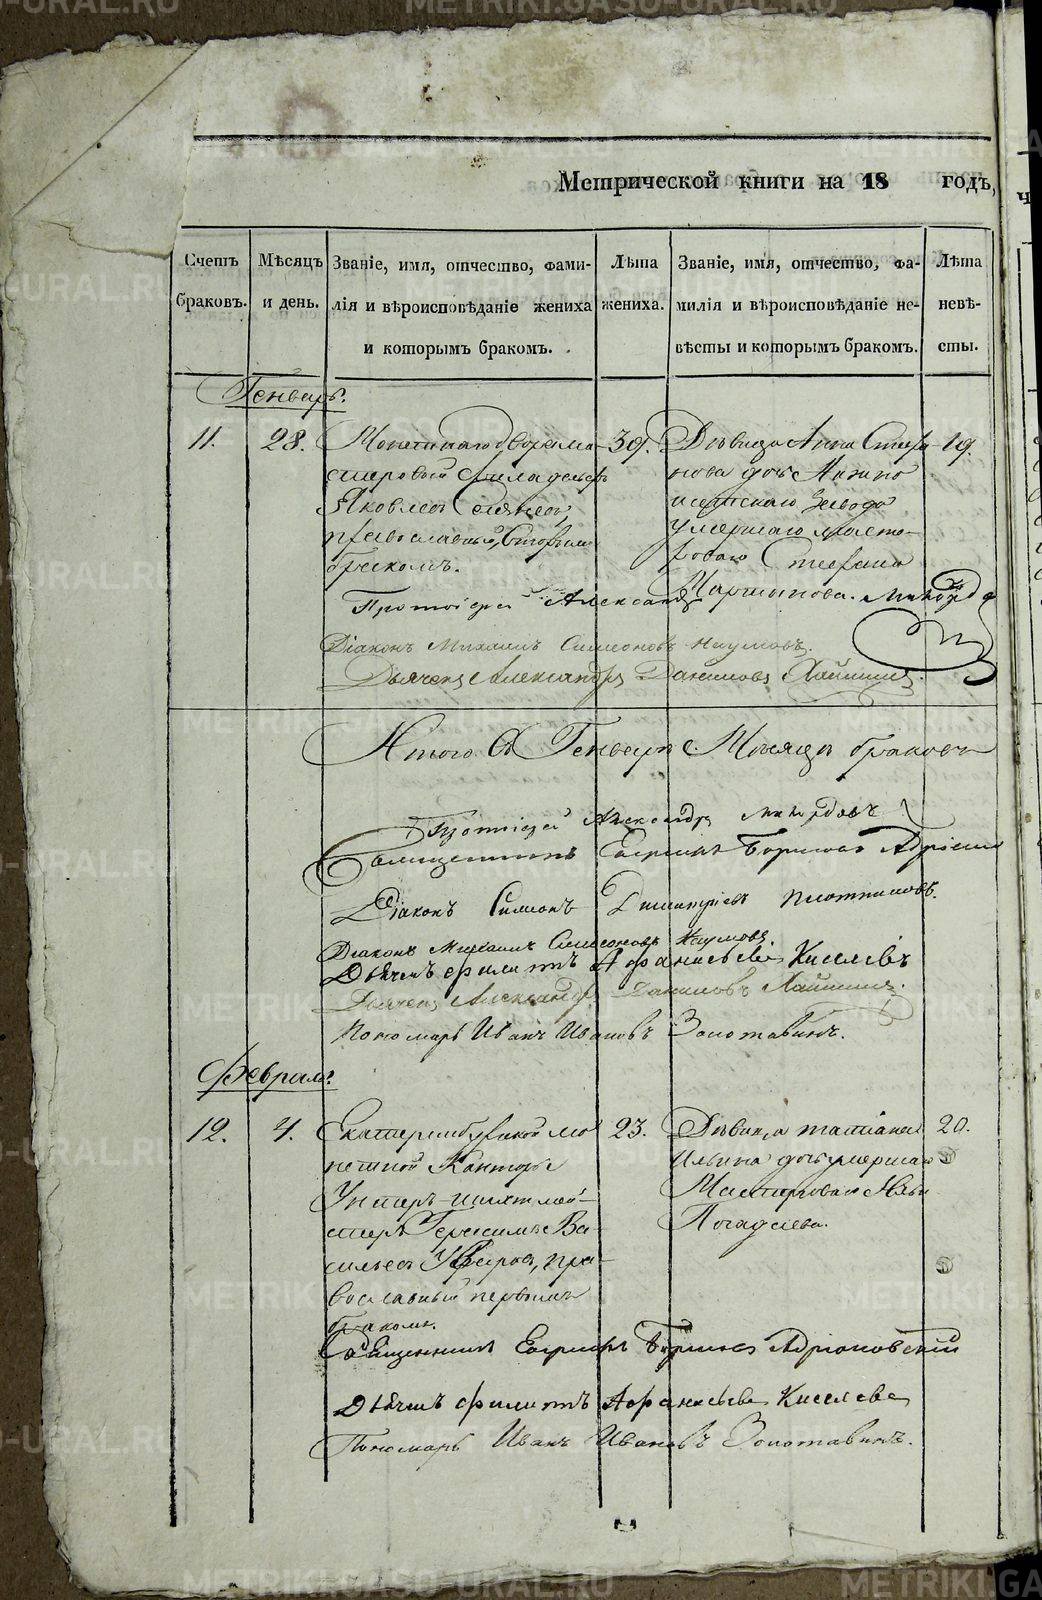 Метрической книги на 18 годъ,
Счетъ браковъ.
Мѣсяцъ и день.
Званіе, имя, отчество, фами-
лія и вѣроисповѣданіе жениха
и которымъ бракомъ.
Лѣта
жениха.
Званіе, имя, отчество, фа-
милія и вѣроисповѣданіе не-
вѣсты и которымъ бракомъ.
Лѣта
невѣ-
сты.
Генварь.
11. 28. Монетнаго двора ма-
стеровый
Яковлевъ
православный, вторымъ
бракомъ.
39.
Дѣвица Анна Стефа
нова дочь Нижне
исетскаго завода
умершаго масте-
роваго Стефана
Мартынова.
19.
Протоіерей Александръ
Діаконъ Михаилъ Симеоновъ Наумовъ.
Дьячекъ Александръ Даниловъ
Итого въ Генварѣ Мѣсяцѣ браковъ
Протоіерей Александръ
Священникъ Борисовъ
Діаконъ Симеонъ Димитріевъ Плотниковъ.
Діаконъ Михаилъ Симеоновъ Наумовъ.
Дьячекъ Филиппъ Афанасьевъ Киселевъ
Дьячекъ Александръ Даниловъ
Пономарь Иванъ Ивановъ Золотавинъ.
Февраль.
12. 4. Екатеринбургской мо
нетной Конторы
Унтеръ-шихтмей-
стеръ Герасимъ Ва
сильевъ пра-
вославный первымъ
бракомъ.
23.
Дѣвица Татіана
Ильина дочь умершаго
Мастероваго Ильи
Погадаева.
20.
Священникъ Борисовъ Адріановскій
Дьячекъ Филиппъ Афанасьевъ Киселевъ
Пономарь Иванъ Ивановъ Золотавинъ.
METRIKI.GASO-URAL.RU